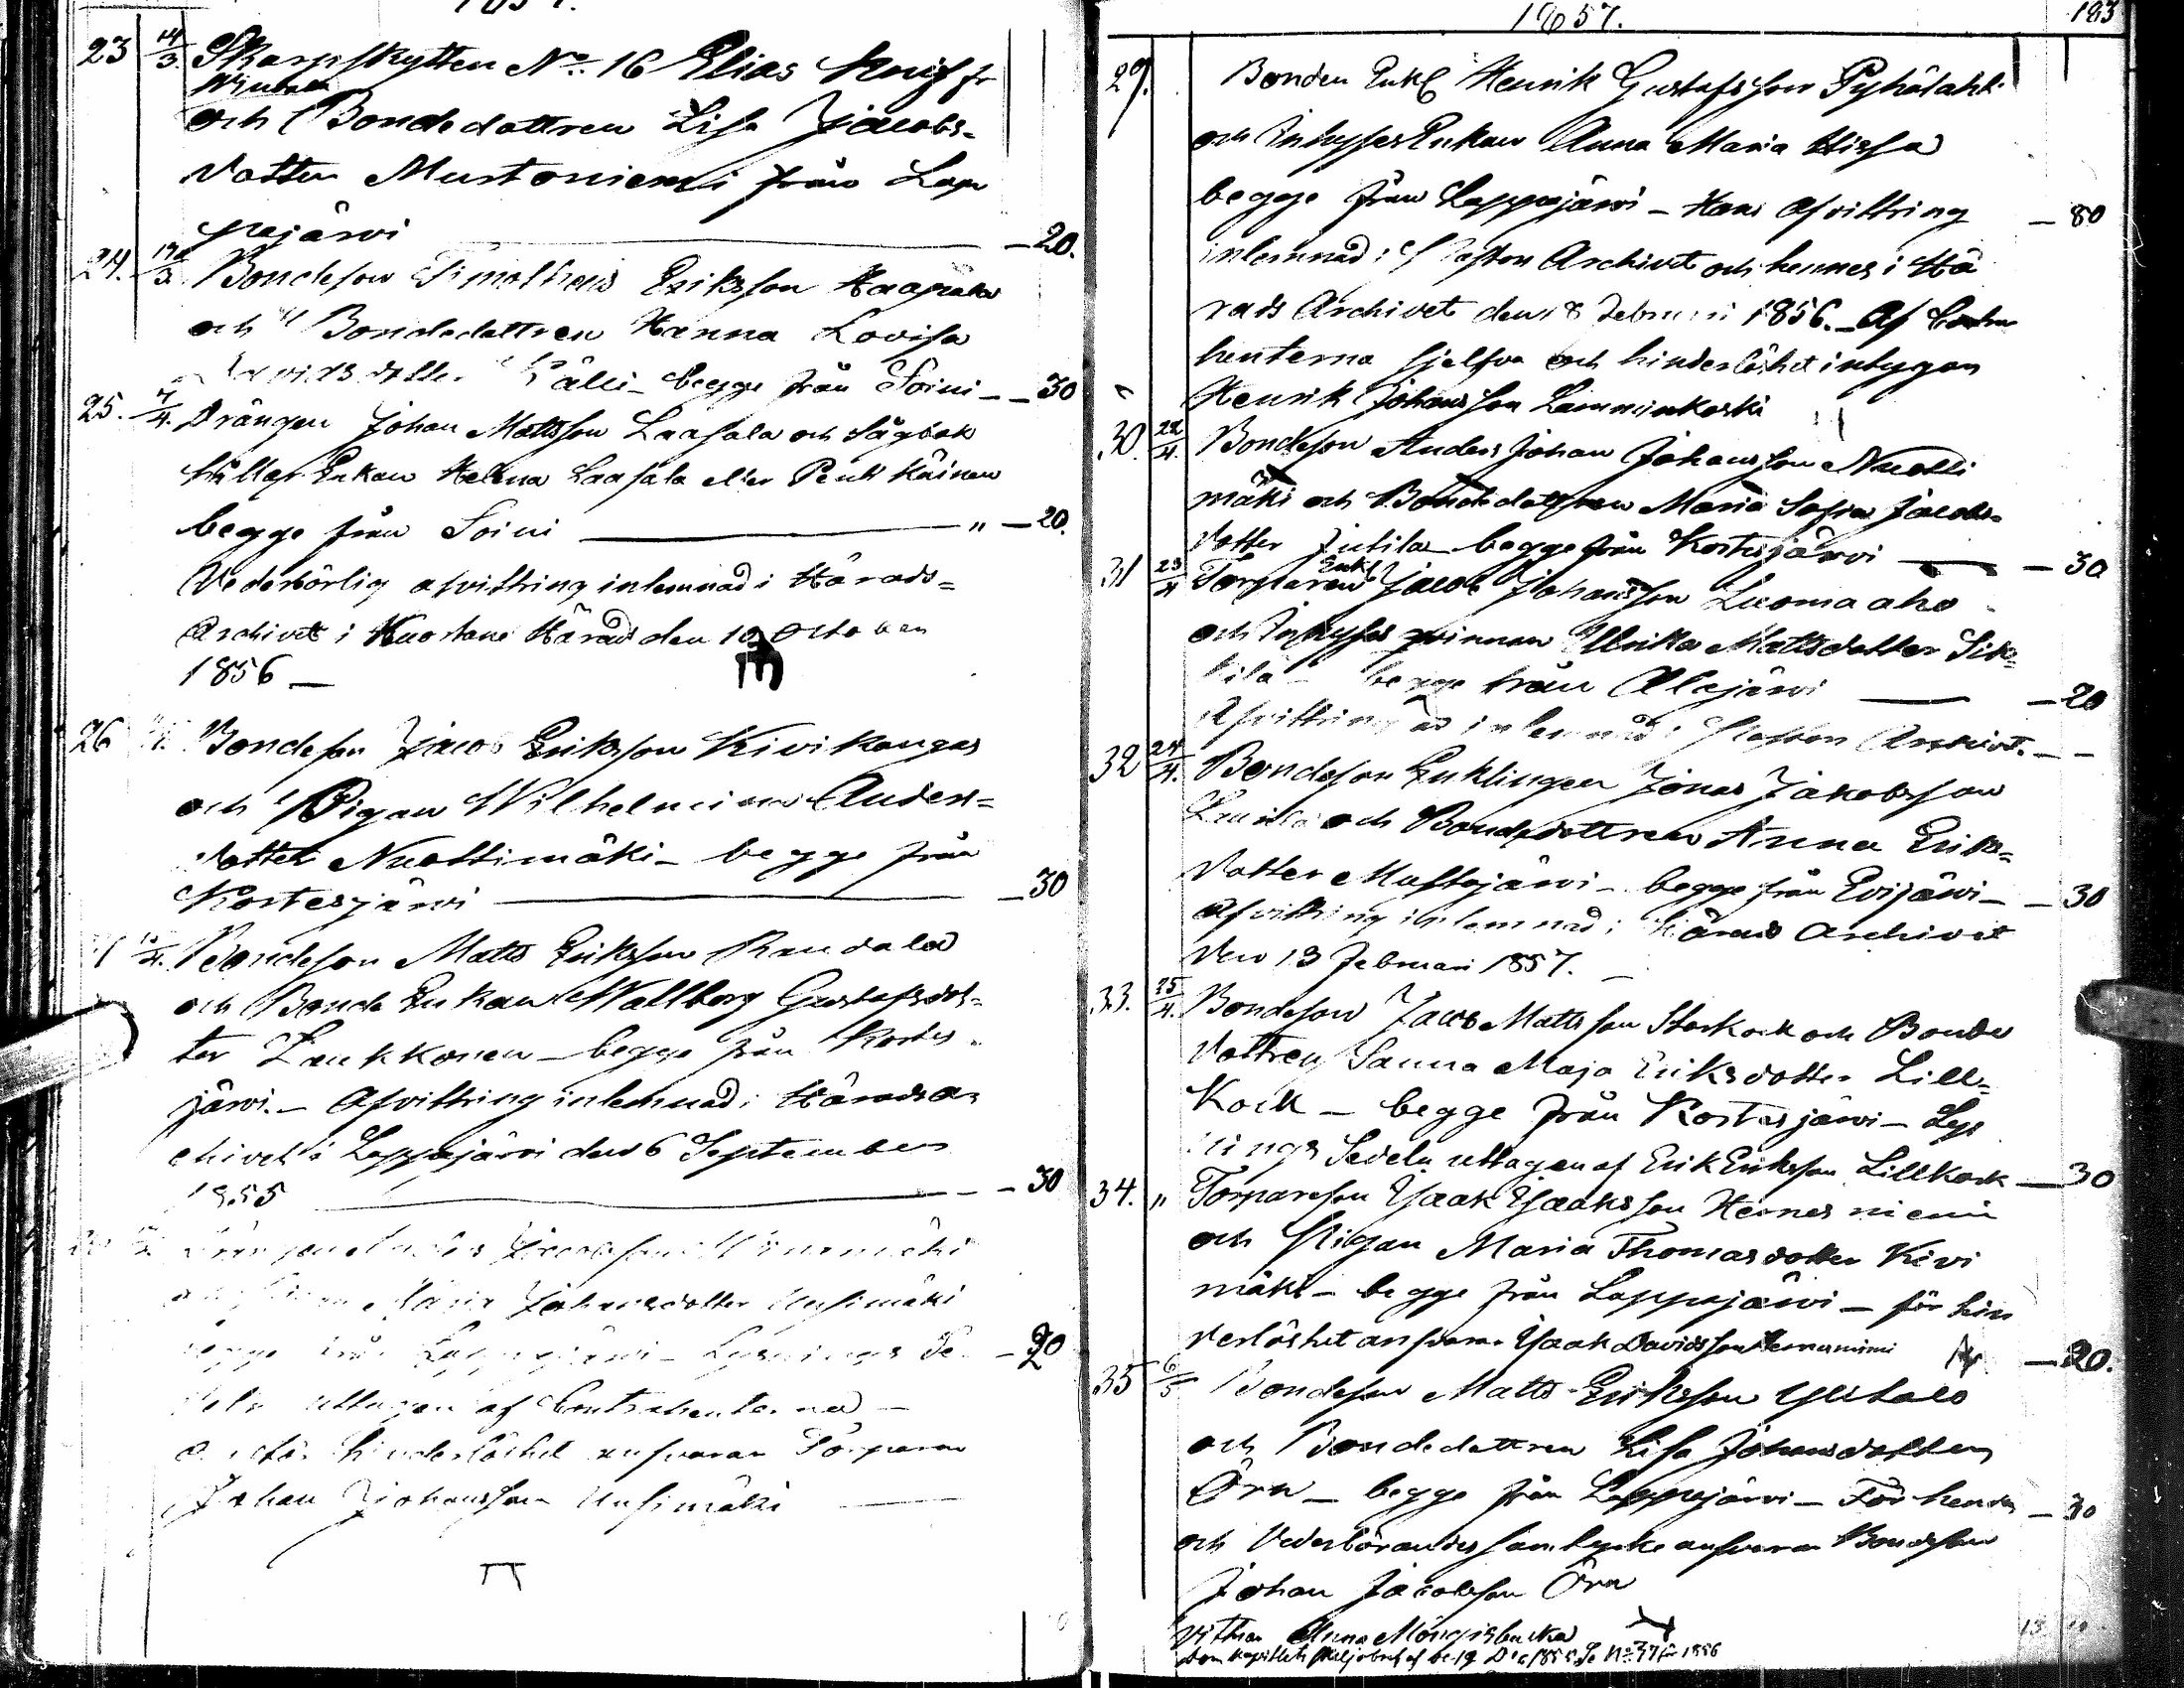 1857.
23 14/3. Skarpskytten No: 16 Elias Knif fr
Windala
och Bondedottren Lisa Jacobs-
dotter Mustoniemi från Lap
pajärvi — 20.
24. 19/3 Bondeson Timotheus Eriksson Haapala
och Bondedottren Hanna Lovisa
Davidsdotter Källi - begge från Soini — 30
25. 4/4. Drängen Johan Mattsson Laasala och
Enkan Helena Laasala eller Penttikäinen
begge från Soini — " — 20.
Vederbörlig afvittring inlemnad i Härads-
Archivet i Kuortane Härad den 19 October
1856 —
26 Bondeson Jacob Eriksson Kivikangas
och Pigan Wilhelmina Anders-
dotter Nuottimäki - begge från
Kortesjärvi — 30
Bondeson Matts Eriksson Randala
och Bonde Enkan Wallborg Gustafsdot-
ter Laukkonen - begge från Kortes-
järvi. - Afvittring inlemnad i Häradsar
chivet i Lappajärvi den 6 September
1855 — 30
Jacobsson
Maria Johansdotter Uusimäki
begge från Lappajärvi - Lysnings Se- — 20
deln uttagen af Contrahenterna —
och för hinderlöshet ansvarar Torparen
Johan Johansson Uusimäki —
1857. 183
29. Bonden Enkl Henrik Gustafsson Pyhälaht
och Inhyses Enkan Anna Maria Hissa
begge från Lappajärvi - Hans Afvittring — 80
inlemnad i Pastors Archivet och hennes i Hä
rads Archivet den 8 Februari 1856. - Af Contra
henterna sjelfva och hinderlöshet intygan
Henrik Johansson Lamminkoski
30. 22/4. Bondeson Anders Johan Johansson Nuotti
mäki och Bondedottren Maria Sofia Jacobs-
dotter Jutila - begge från Kortesjärvi — 30
31 23/4 Torparen Enkl Jacob Johansson Luomaaho
och Inhyses qvinnan Ulrika Mattsdotter Sik-
kilä - begge från Alajärvi — 20
Afvittring är inlemnad i Pastors Archivet. —
32 24/4. Bondeson Enklingen Jonas Jakobsson
Laurila och Bondedottren Anna Eriks-
dotter Mustajärvi - begge från Evijärvi — 30
Afvittring inlemnad i Härads Archivet
den 13 Februari 1857. —
33. 25/4. Bondeson Jacob Mattsson Storkock och Bonde
dottren Sanna Maja Eriksdotter Lill-
Kock - begge från Kortesjärvi - Lys
nings Sedeln uttagen af Erik Eriksson Lillkock — 30
34. " Torpareson Isaak Isaaksson Hernesniemi
och Pigan Maria Thomasdotter Kivi
mäki - begge från Lappajärvi - för hin
derlöshet ansvarar Isaak Davidsson Hernesniemi — 20.
35 6/5 Bondeson Matts Eriksson Ylitalo
och Bondedottren Lisa Johansdotter
Örn - begge från Lappajärvi - För hender — 30
och Vederbörandes samtycke ansvarar Bondeson
Johan Jacobsson Örn
Anna
Domkapitlets skiljobref af be 19 Dec 1855 Se No 37 för 1856